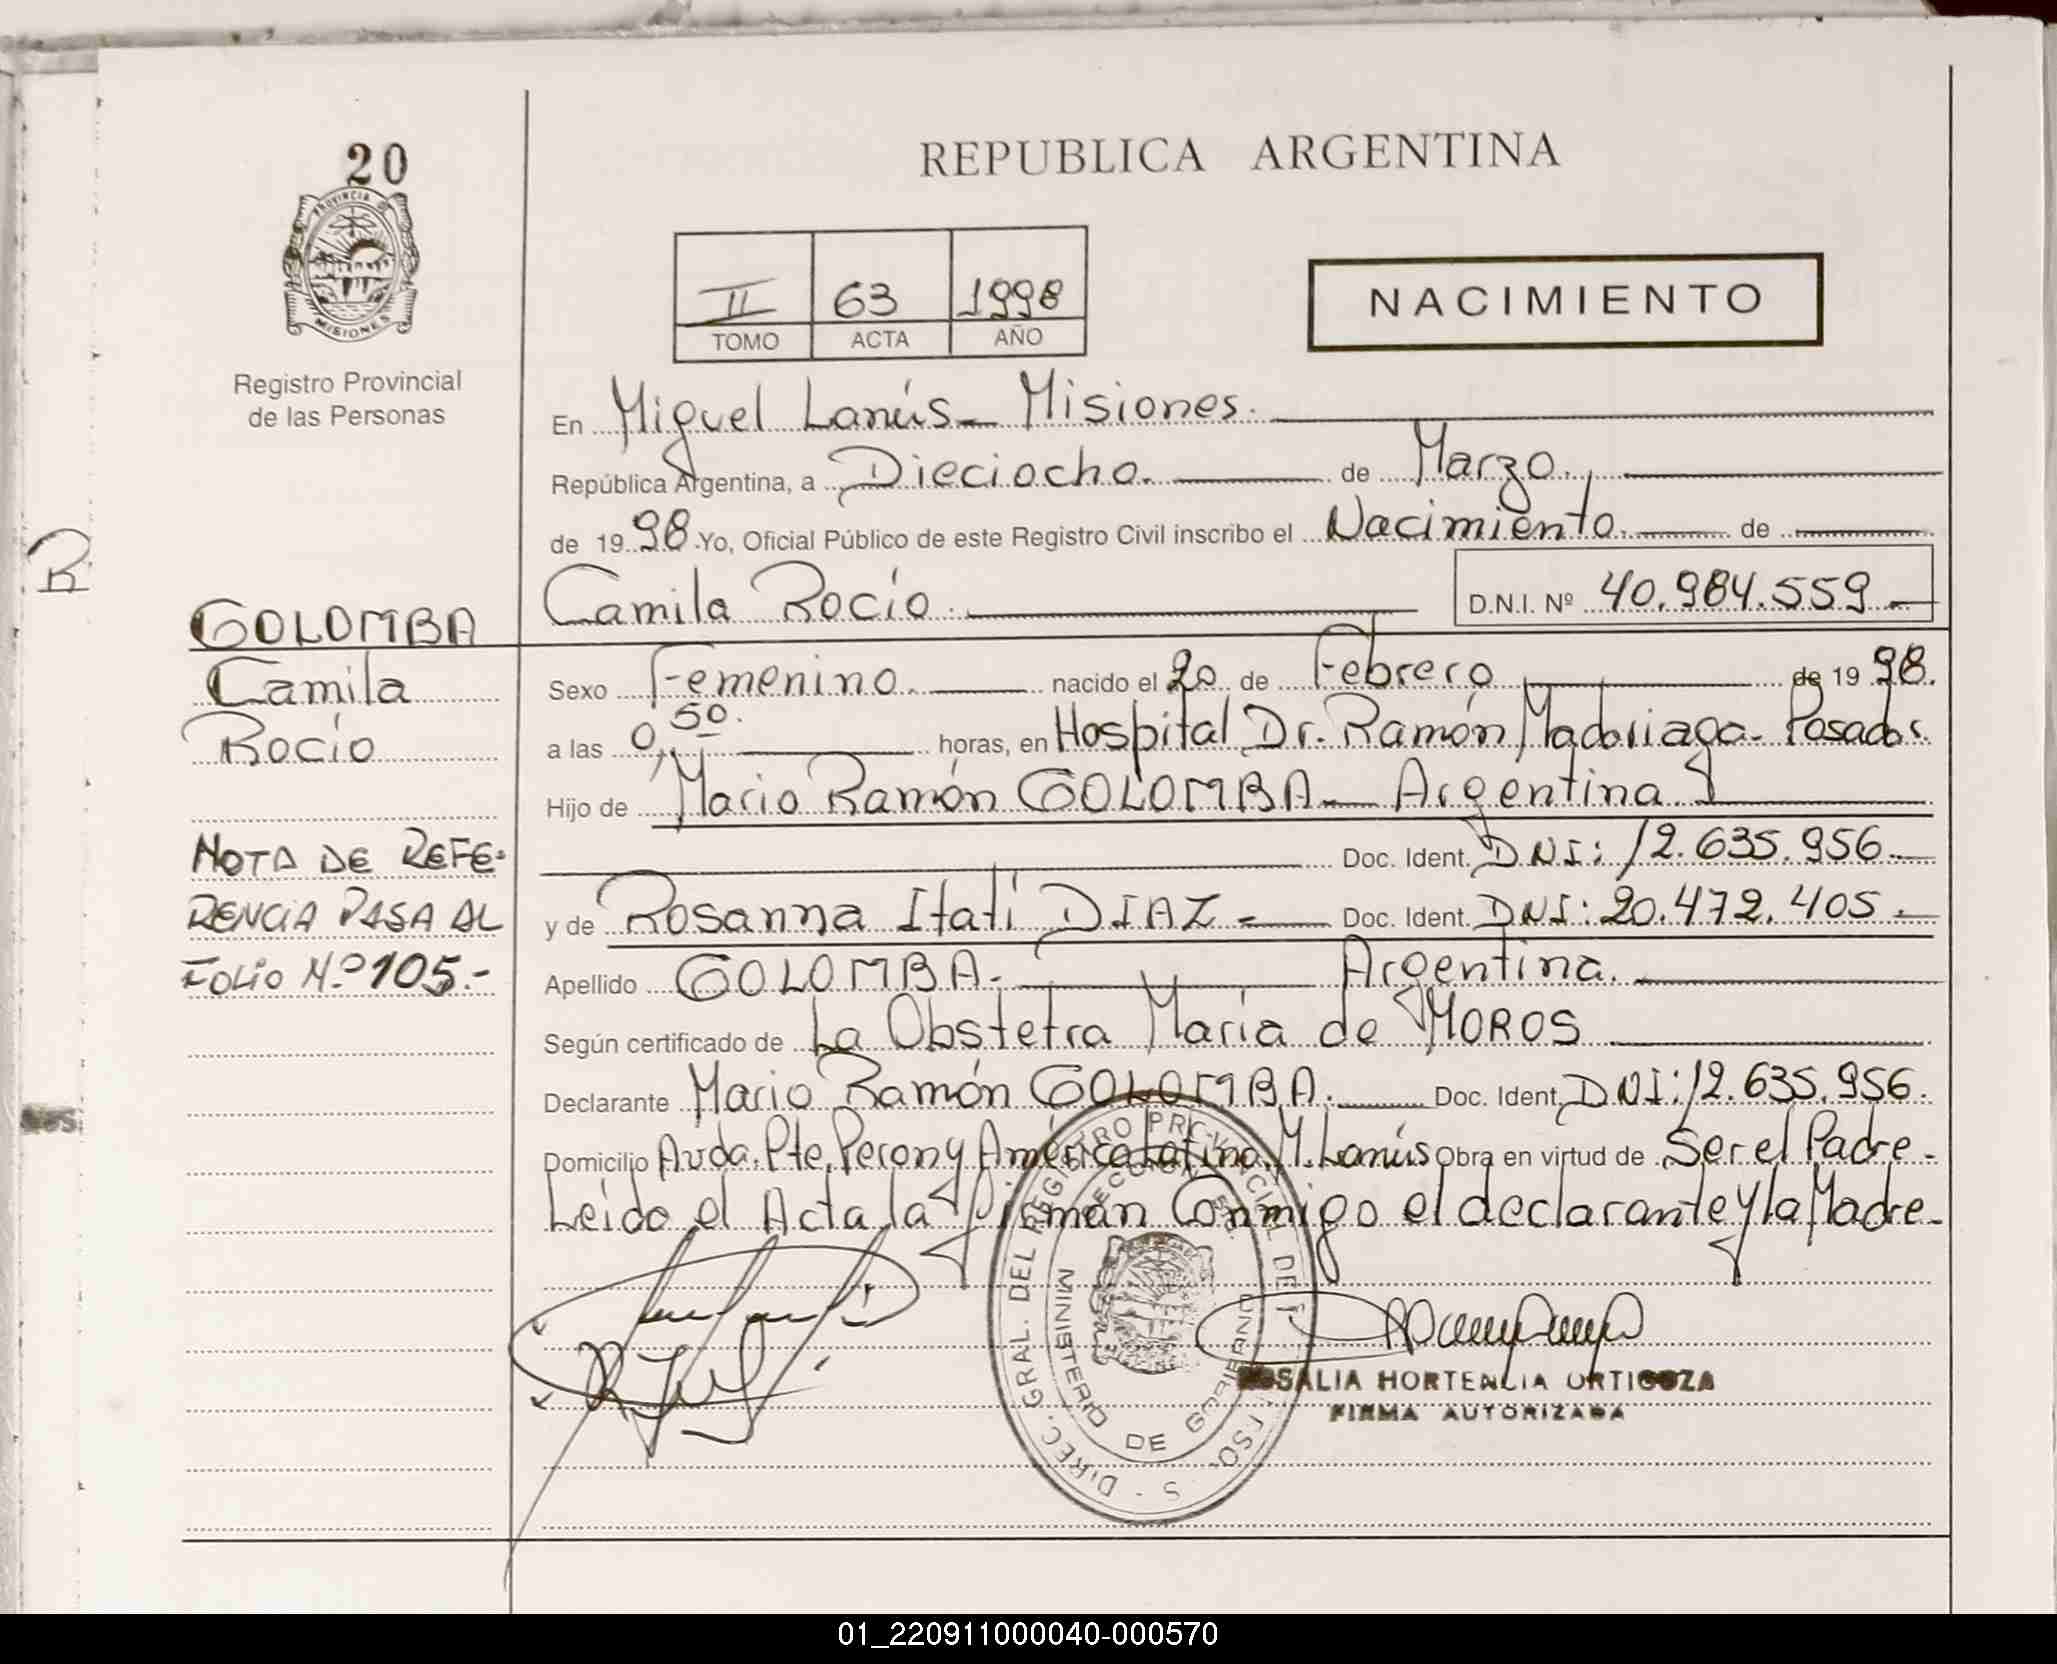 20
PROVINCIA DE
MISIONES
Registro Provincial
de las Personas
REPUBLICA ARGENTINA
II 63 1998
TOMO ACTA AÑO
NACIMIENTO
En Miguel Lanús - Misiones.
República Argentina, a Dieciocho. de Marzo.
de 1998 Yo, Oficial Público de este Registro Civil inscribo el Nacimiento. de
Camila Rocío. D.N.I. Nº 40.984.559
Sexo Femenino. nacido el 20 de Febrero de 1998.
a las 0,50. horas, en Hospital Dr. Ramón Madariaga - Posadas.
Hijo de Mario Ramón GOLOMBA - Argentina
Doc. Ident. DNI: 12.635.956.
y de Rosanna Itatí DIAZ - Doc. Ident. DNI: 20.472.405.
Apellido GOLOMBA. Argentina.
Según certificado de La Obstetra María de MOROS
Declarante Mario Ramón GOLOMBA. Doc. Ident. DNI: 12.635.956.
Domicilio Avda. Pte. Peron y América Latina. M. Lanús Obra en virtud de Ser el Padre -
Leido el Acta la Firman Conmigo el declarante y la Madre -
GOLOMBA
Camila
Rocío
NOTA DE REFE-
RENCIA PASA AL
FOLIO Nº 105.-
DIREC. GRAL. DEL REGISTRO PROVINCIAL DE
MINISTERIO DE GOBIERNO
ROSALIA HORTENCIA ORTIGOZA
FIRMA AUTORIZADA
01_220911000040-000570